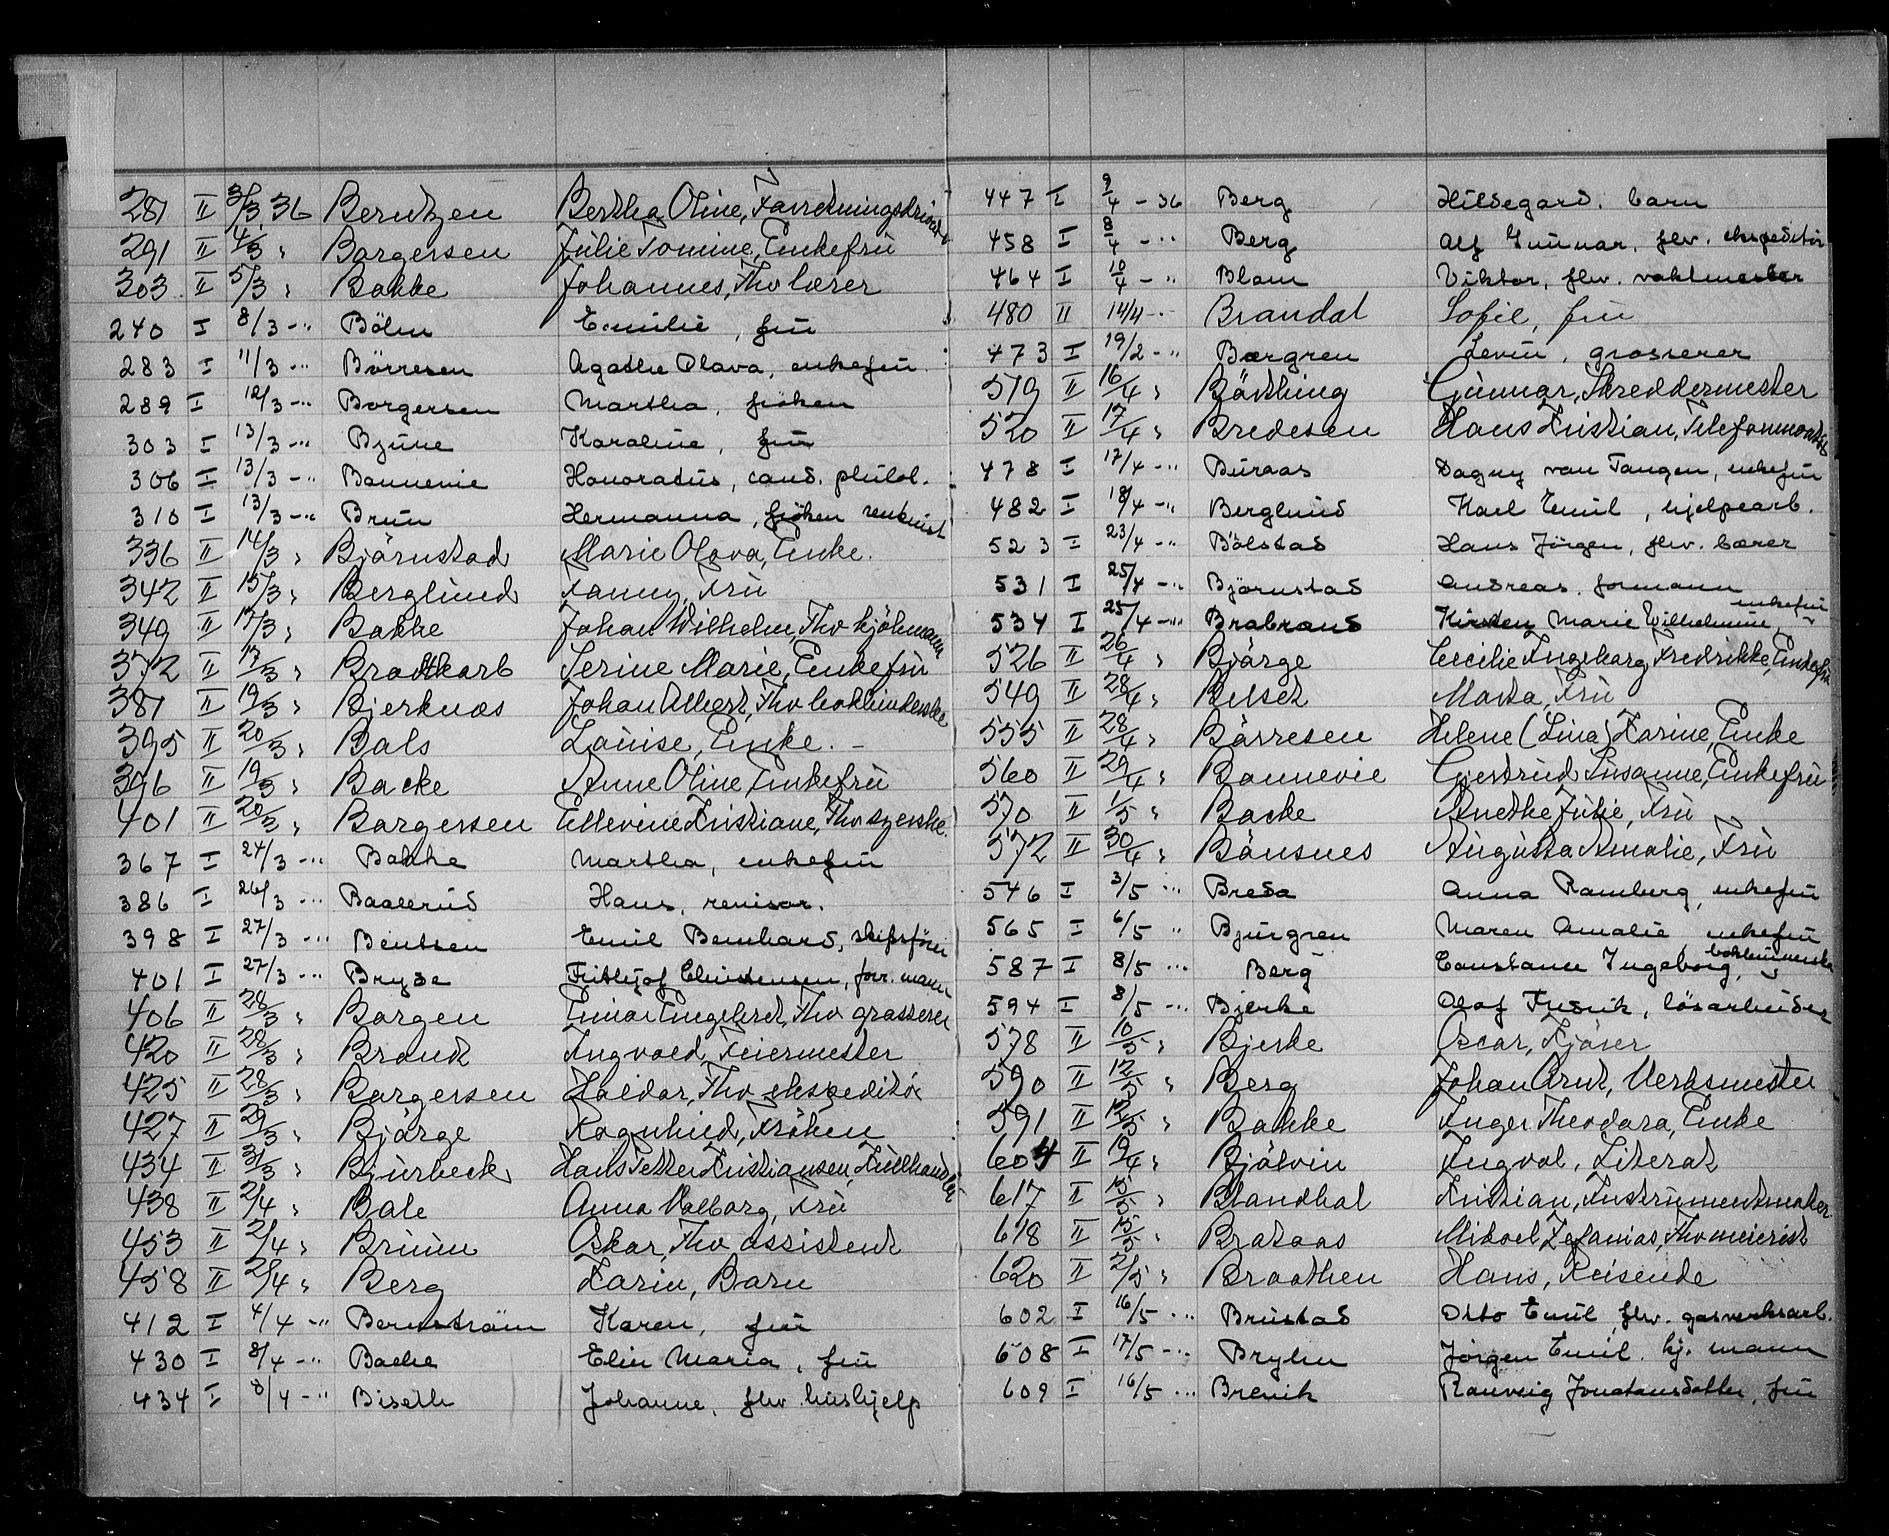 281 II 3/3 36 Berntzen Bertha Oline, Forretningsdrivende
291 II 4/3 " Borgersen Julie Tomine, Enkefru
303 II 5/3 " Bakke Johannes, Fhv bærer
240 I 8/3 -" Böhn Emilie, fru
283 I 11/3 -" Börresen Agathe Olava, enkefru
289 I 12/3 -" Borgersen Martha, fröken
303 I 13/3 -" Bjune Karoline, fru
306 I 13/3 -" Bonnevie Honoratus, cand. philol.
310 I 13/3 -" Brun Hermanna, fröken rentenist
336 II 14/3 " Björnstad Marie Olava, Enke.
342 II 15/3 " Berglund Fanny, Fru
349 II 17/3 " Bakke Johan Wilhelm, Fhv kjöbmann
372 II 17/3 " Bradtkorb Serine Marie, Enkefru
387 II 19/3 " Bjerknæs Johan Albert, Fhv
395 II 20/3 " Bals Louise, Enke. -
396 II 19/3 " Backe Anne Oline, Enkefru
401 II 20/3 " Borgersen Ellevine Kristiane, Fhv syerske.
367 I 24/3 -" Bakke Martha, enkefru
386 I 26/3 -" Baalerud Hans, revisor.
398 I 27/3 -" Bentsen Emil Bernhard, skipsförer
401 I 27/3 -" Bryde Frithjof Christensen, forr. mann
406 II 28/3 " Borgen Einar Engebret, Fhv grosserer
420 II 28/3 " Brandt Ingvald, Feiermester
425 II 28/3 " Borgersen Haldor, Fhv ekspeditör
427 II 29/3 " Björge Ragnhild, Fröken
434 II 31/3 " Bjurbeck Hans Petter Kristiansen, Kullhandler
438 II 2/4 " Bale Anna Valborg, Fru
453 II 2/4 " Bruun Oskar, Fhv assistent
458 II 2/4 " Berg Karin, Barn
412 I 4/4 -" Bernström Karen, fru
430 I 8/4 -" Bache Elin Maria, fru
434 I 8/4 -" Biseth Johanne, fhv hushjelp
447 I 9/4 -36 Berg Hildegard, barn
458 I 8/4 -" Berg Alf Gunnar, fhv. ekspeditör
464 I 10/4 -" Blom Viktor, fhv. vaktmester
480 II 14/4 -" Brandal Sofie, fru
473 I 19/2 -" Borgren Levin, grosserer
519 II 16/4 " Bärthing Gunnar, Skreddermester
520 II 17/4 " Bredesen Hans Kristian, Telefonmontör
478 I 17/4 -" Buraas Dagny van Tangen, enkefru
482 I 18/4 -" Berglund Karl Emil, hjelpearb.
523 I 23/4 -" Bölstad Hans Jörgen, fhv. bærer
531 I 25/4 -" Björnstad Andreas, formann
534 I 25/4 -" Brobrand Kirsten Marie Wilhelmine, enkefru
526 II 26/4 " Bjärge Cecilie Ingeborg Fredrikke, Enkefru
549 II 28/4 " Belset Marta, Fru
555 II 28/4 " Börresen Helene (Lina) Karine, Enke
560 II 29/4 " Bonnevie Gjertrud Susanne, Enkefru
570 II 1/5 " Backe Anethe Julie, Fru
572 II 30/4 " Bönsnes Augusta Amalie, Fru
546 I 3/5 -" Breda Anna Ramberg, enkefru
565 I 6/5 " Bjurgren Maren Amalie enkefru
587 I 8/5 -" Berg Constance Ingeborg,
594 I 8/5 -" Bjerke Olaf Fredrik, lösarbeider
578 II 10/5 " Bjerke Oscar, Kjörer
590 II 12/5 " Berg Johan Arnt, Verksmester
591 II 12/5 " Bakke Inger Theodora, Enke
604 II 19/4 " Bjölvin Ingvol, Literat
617 II 15/5 " Blandhol Kristian, Instrumentmaker
618 II 15/5 " Brataas Mikael Zefanias, Fhv meierist
620 II 2/5 " Braathen Hans, Reisende
602 I 16/5 -" Brustad Otto Emil, fhv. gasverksarb.
608 I 17/5 -" Bryhn Jörgen Emil, hj. mann
609 I 16/5 -" Brevik Ranveig Jonatansdotter, fru